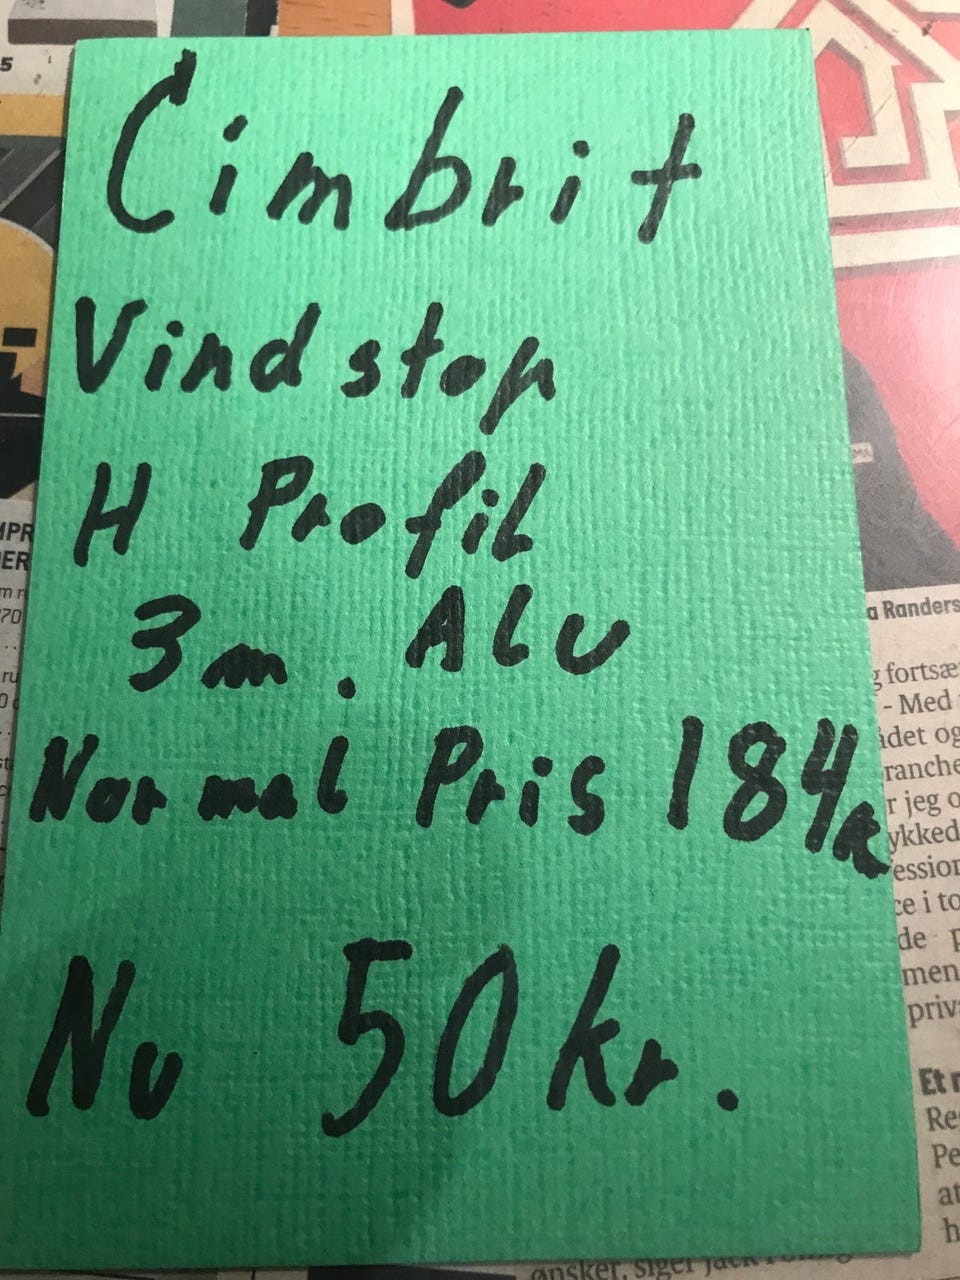 Cimbrit
Vindstop
H Profil
3m. ALU
Normal Pris 184k
Nu 50kr.
5
MPR
DER
a Randers
g fortsæ
- Med
ådet og
ranche
r jeg o
ykked
ession
ce i to
de p
men
priv
Et
Re
Pe
at
h
ønsker, siger